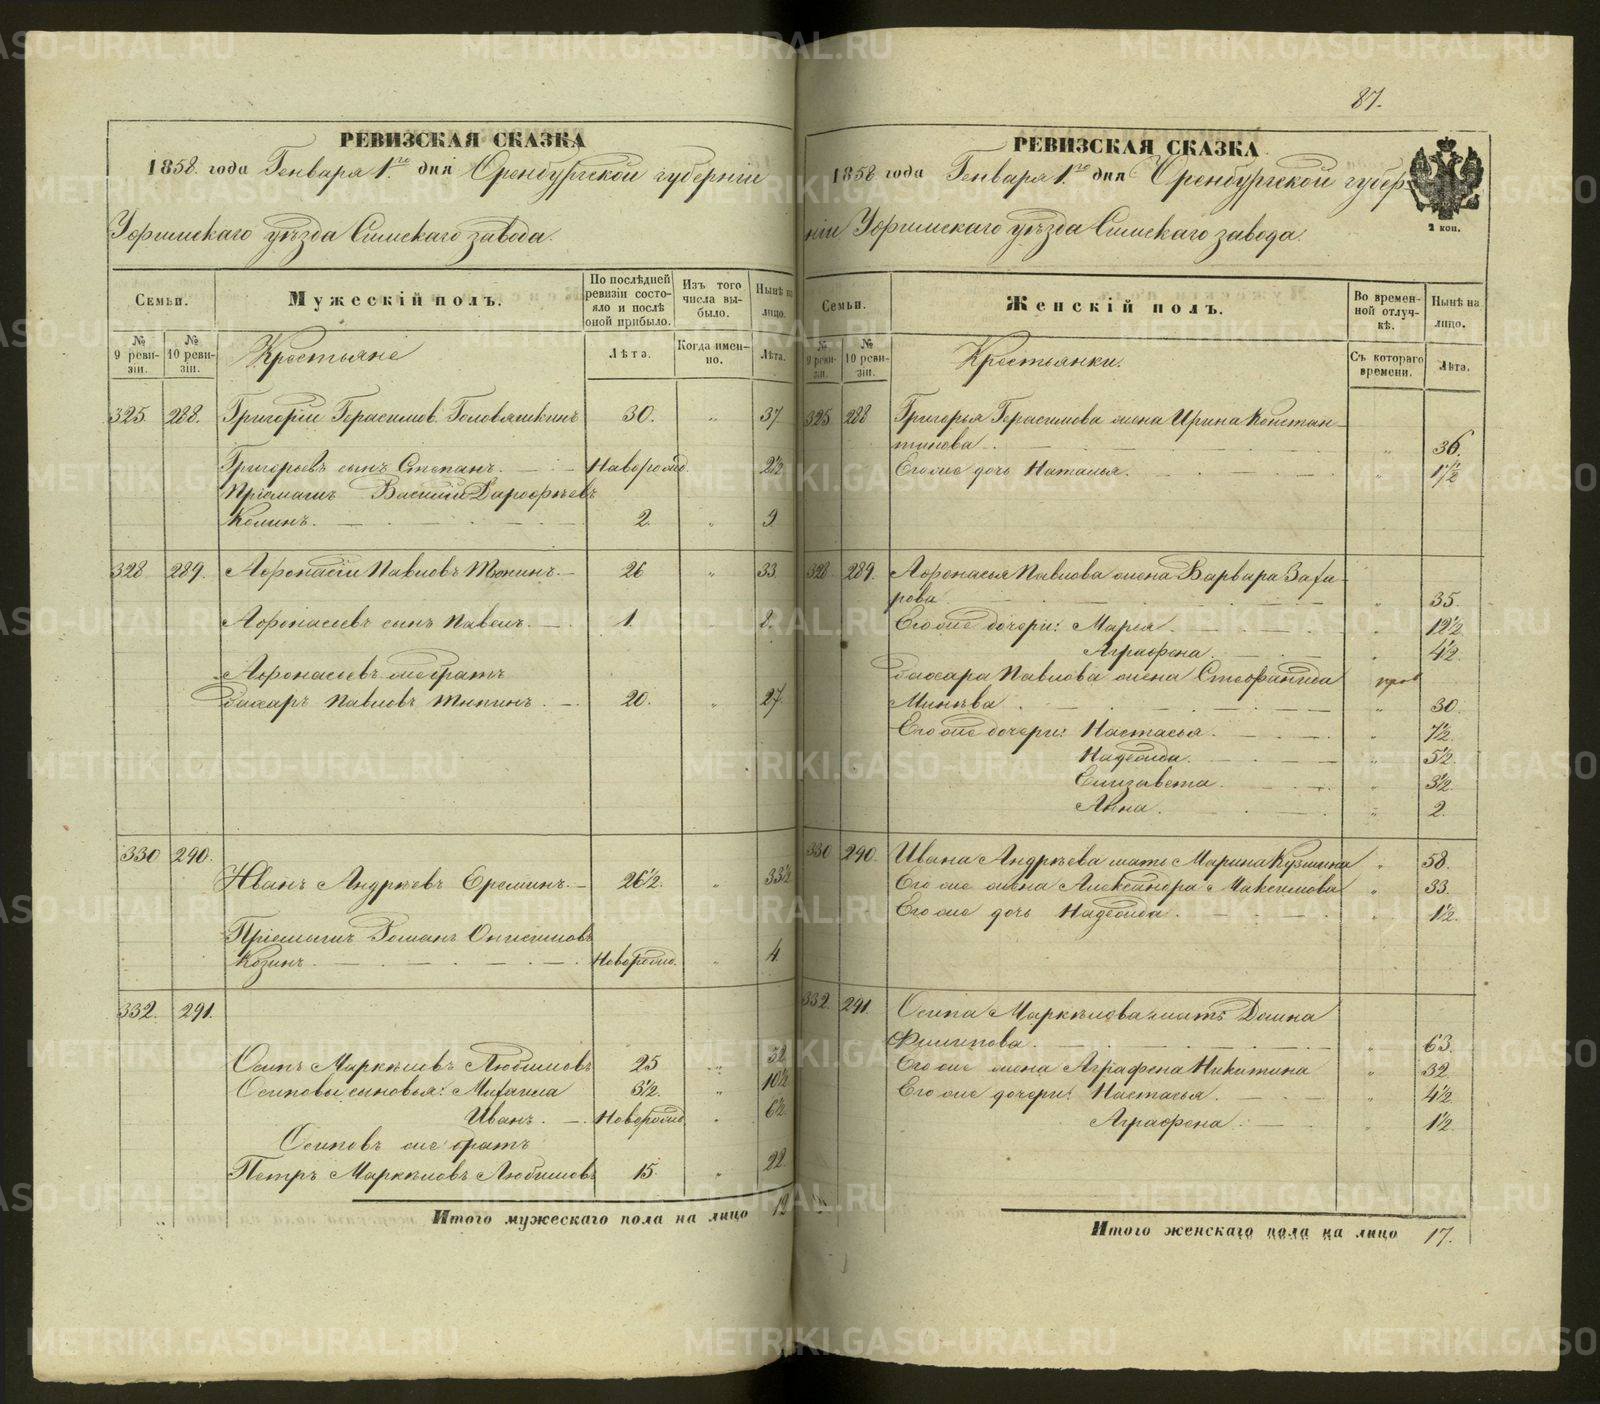 87.
РЕВИЗСКАЯ СКАЗКА
1858 года Генваря 1го дня Оренбургской губерніи
Уфимскаго уѣзда Симскаго завода.
Семьи.
Мужескій полъ.
По послѣдней ревизіи состояло и послѣ оной прибыло.
Изъ того числа выбыло.
Нынѣ на лицо.
№ 9 ревизіи.
№ 10 ревизіи.
Крестьяне
Лѣта.
Когда именно.
Лѣта.
325 288. Григорій Герасимов Головяшкинъ 30. „ 37
Григорьевъ сынъ Степанъ. Новорожд. 2½
Пріемышъ Василій Дарофѣевъ
2. „ 9
328 289. Афонасій Павловъ Тюнинъ. 26 „ 33
Афонасьевъ сынъ Павелъ. 1.
Афонасьевъ же братъ
Захаръ Павловъ Тюнинъ. 20. „ 27
330 290.
Иванъ Андреѣвъ Ереминъ. 26½. „ 33½
Пріемышъ Романъ Онисимовъ
Козинъ. Новорожд. „ 4
332. 291.
Осипъ Маркѣловъ Любимовъ 25 „ 32
Осиповы сыновья: Михаила 3½. „ 10½
Иванъ. Новорожд. „ 6½
Осиповъ же братъ
Петръ Маркѣловъ Любимовъ 15. „ 22
Итого мужескаго пола на лицо 12
РЕВИЗСКАЯ СКАЗКА
1858 года Генваря 1го дня Оренбургской губер-
ніи Уфимскаго уѣзда Симскаго завода.
2 коп.
Семьи.
Женскій полъ.
Во временной отлучкѣ.
Нынѣ на лицо.
№ 9 ревизіи.
№ 10 ревизіи.
Крестьянки.
Съ котораго времени.
Лѣта.
325 288 Григорья Герасимова жена Ирина Констан-
тинова. „ 36.
Его же дочь Наталья. „ 1½
328 289. Афонасья Павлова жена Варвара Заха-
рова „ 35.
Его же дочери: Марья. „ 12½
Аграфена. „ 4½
Захара Павлова жена Стефанида
Минѣева „ 30.
Его же дочери: Настасья. „ 7½.
Надежда. „ 5½
Елизавета. „ 3½.
Анна. „ 2.
330 290. Ивана Андрѣева мать Марина Кузмина „ 58.
Его же жена Александра Максимова „ 33.
Его же дочь Надежда. „ 1½.
332. 291. Осипа Маркѣлова мать Домна
Филипова. „ 63.
Его же жена Аграфена Никитина „ 32.
Его же дочери: Настасья. „ 4½
Аграфена. „ 1½
Итого женскаго пола на лицо 17.
METRIKI.GASO-URAL.RU